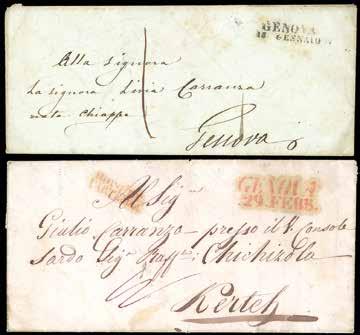 GENOVA
18 GENNAIO
Alla Signora
La Signora Livia Carranza
nata Chiappe
Genova
GENOVA
29. FEBB.
Al Sig.
Giulio Carranza presso il V. Console
Sardo Sig.r Raff.le Chichizola
Kertch